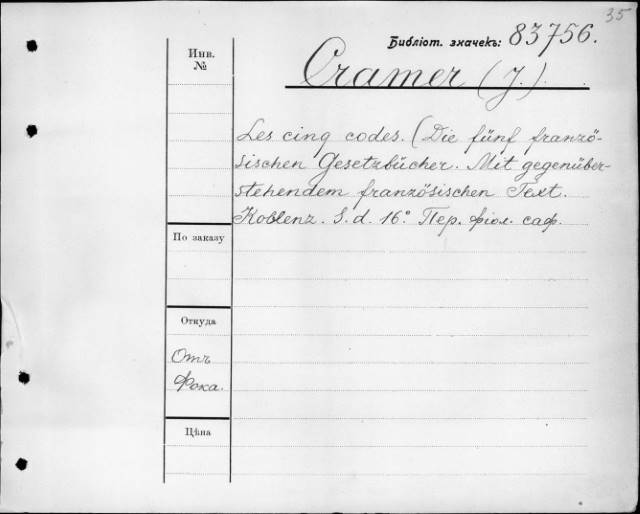 35
Библіот. значекъ: 83756.
Инв.
№
Cramer (J.)
Les cinq codes. (Die fünf franzö-
sischen Gesetzbücher. Mit gegenüber-
stehendem französischen Text.
Koblenz. S. d. 16° Пер. фіол. саф.
По заказу
Откуда
Отъ
Фока.
Цѣна